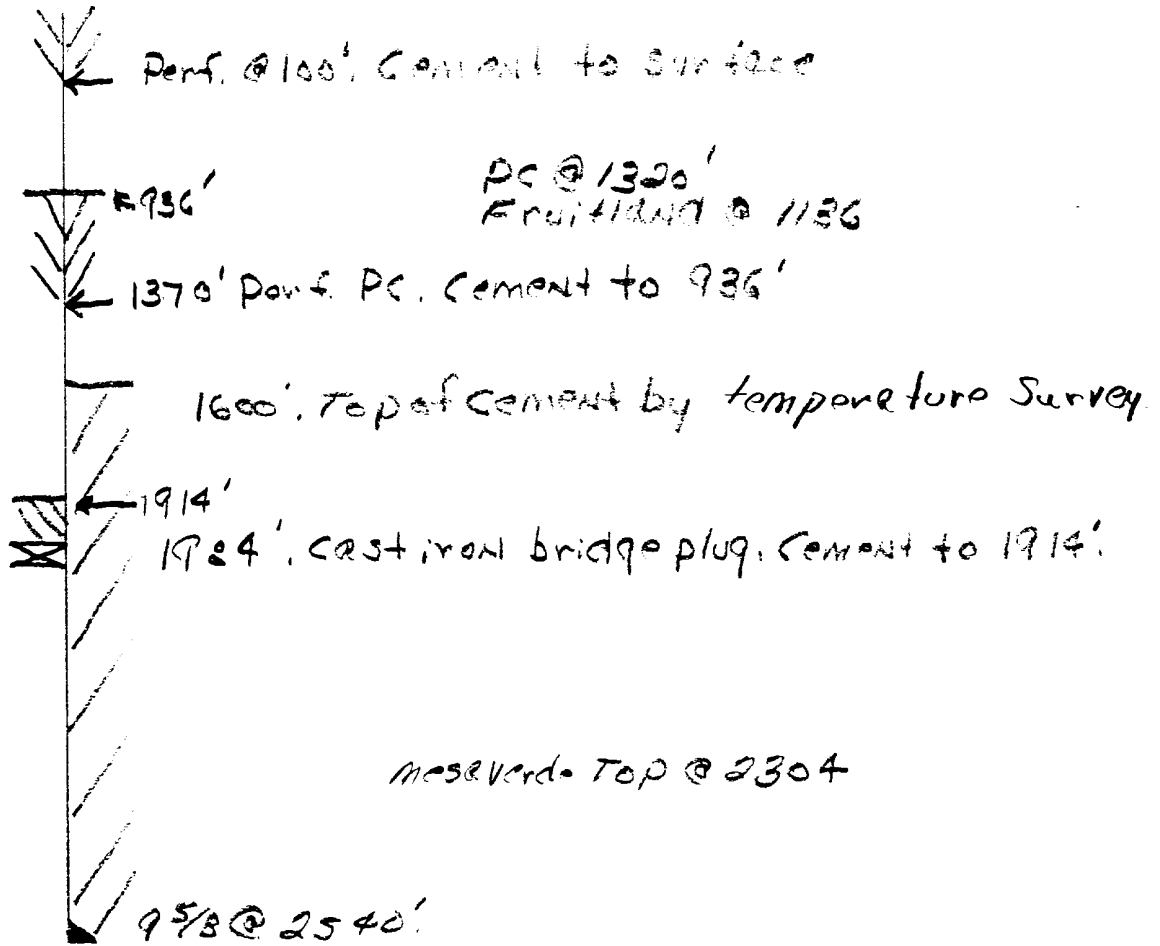 Perf. @ 100'. Cement to surface
936'
PC @ 1320'
Fruitland @ 1136
1370' Perf. PC. Cement to 936'
1600'. Top of Cement by temperature Survey
1914'
1984'. Cast iron bridge plug. Cement to 1914'.
Mesaverde Top @ 2304
9 5/8 @ 2540'.